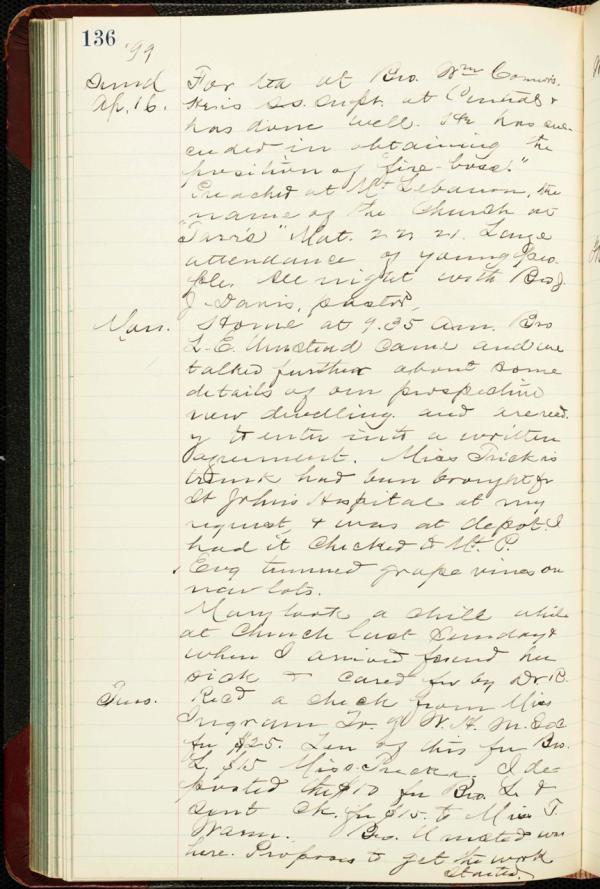 136 '99
Sund For tea at Bro. Wm Connors.
Ap. 16. He is So. Supt. at Central &
has done well. He has suc-
ceeded in obtaining the
position of "fire-boss."
Preached at Mt Lebanon, the
name of the Church at
"Tarr's" Mat. 22, 21. Large
attendance of young peo-
ple. All night with Bro J.
J. Davis, pastor.
Mon. Home at 9.35 am. Bro
L. E. Umstead came and we
talked further about some
details of our prospective
new dwelling and are read-
y to enter into a written
agreement. Miss Frick's
trunk had been brought fr
St John's Hospital at my
request, & was at depot. I
had it checked to Mt. P.
Evg trimmed grape vines on
new lots.
Mary took a chill while
at Church last Sunday &
when I arrived found her
sick & cared for by Dr R.
Tues. Rec'd a check from Miss
Ingram Tr. of W. H. M. Soc
for $25. Ten of this for Bro.
L. $15 Miss Frick. I de-
posited the $10 for Bro. L. &
sent ck. for $15. to Miss F.
Bro. Umstead was
here. Proposes to get the work
started.